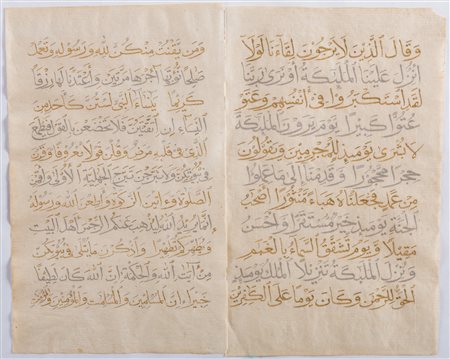 وَقَالَ الَّذِينَ لَا يَرْجُونَ لِقَاءَنَا لَوْلَا
أُنْزِلَ عَلَيْنَا الْمَلٰئِكَةُ أَوْ نَرَى رَبَّنَا
لَقَدِ اسْتَكْبَرُوا فِي أَنْفُسِهِمْ وَعَتَوْ
عُتُوًّا كَبِيرًا يَوْمَ يَرَوْنَ الْمَلٰئِكَةَ
لَا بُشْرَى يَوْمَئِذٍ لِلْمُجْرِمِينَ وَيَقُولُونَ
حِجْرًا مَحْجُورًا وَقَدِمْنَا إِلَى مَا عَمِلُوا
مِنْ عَمَلٍ فَجَعَلْنَاهُ هَبَاءً مَنْثُورًا أَصْحٰبُ
الْجَنَّةِ يَوْمَئِذٍ خَيْرٌ مُسْتَقَرًّا وَأَحْسَنُ
مَقِيلًا وَيَوْمَ تَشَقَّقُ السَّمَاءُ بِالْغَمٰمِ
وَنُزِّلَ الْمَلٰئِكَةُ تَنْزِيلًا الْمُلْكُ يَوْمَئِذٍ
الْحَقُّ لِلرَّحْمٰنِ وَكَانَ يَوْمًا عَلَى الْكٰفِرِينَ
وَمَنْ يَقْنُتْ مِنْكُنَّ لِلّٰهِ وَرَسُولِهِ وَتَعْمَلْ
صٰلِحًا نُؤْتِهَا أَجْرَهَا مَرَّتَيْنِ وَأَعْتَدْنَا لَهَا رِزْقًا
كَرِيمًا يٰنِسَاءَ النَّبِيِّ لَسْتُنَّ كَأَحَدٍ مِنَ
النِّسَاءِ إِنِ اتَّقَيْتُنَّ فَلَا تَخْضَعْنَ بِالْقَوْلِ فَيَطْمَعَ
الَّذِي فِي قَلْبِهِ مَرَضٌ وَقُلْنَ قَوْلًا مَعْرُوفًا وَقَرْنَ
فِي بُيُوتِكُنَّ وَلَا تَبَرَّجْنَ تَبَرُّجَ الْجٰهِلِيَّةِ الْأُولَى وَأَقِمْنَ
الصَّلٰوةَ وَءَاتِينَ الزَّكٰوةَ وَأَطِعْنَ اللّٰهَ وَرَسُولَهُ
إِنَّمَا يُرِيدُ اللّٰهُ لِيُذْهِبَ عَنْكُمُ الرِّجْسَ أَهْلَ الْبَيْتِ
وَيُطَهِّرَكُمْ تَطْهِيرًا وَاذْكُرْنَ مَا يُتْلَى فِي بُيُوتِكُنَّ
مِنْ ءَايٰتِ اللّٰهِ وَالْحِكْمَةِ إِنَّ اللّٰهَ كَانَ لَطِيفًا
خَبِيرًا إِنَّ الْمُسْلِمِينَ وَالْمُسْلِمٰتِ وَالْمُؤْمِنِينَ وَالْمُؤْمِنٰتِ